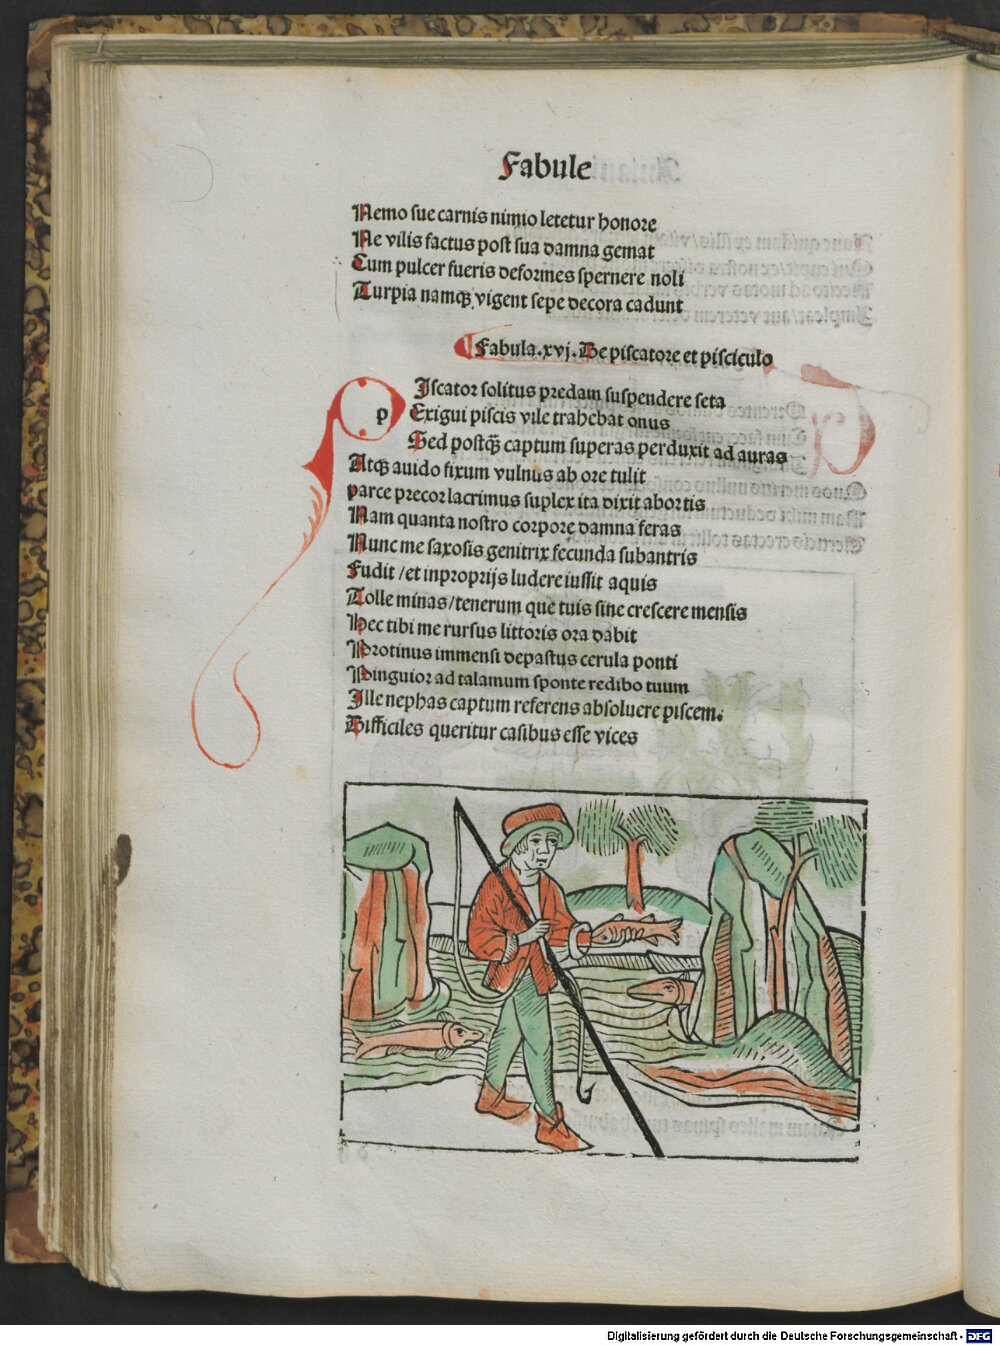 Fabule
Nemo sue carnis nimio letetur honore
Ne vilis factus post sua damna gemat
Cum pulcer fueris deformes spernere noli
Turpia namqꝫ vigent sepe decora cadunt
Fabula.xvj.De piscatore et pisciculo
pIscator solitus predam suspendere seta
Exigui piscis vile trahebat onus
Sed postqꝫ captum superas perduxit ad auras
Atqꝫ auido fixum vulnus ab ore tulit
parce precor lacrimus suplex ita dixit abortis
Nam quanta nostro corpore damna feras
Nunc me saxosis genitrix fecunda subantris
Fudit/et inproprijs ludere iussit aquis
Tolle minas/tenerum que tuis sine crescere mensis
Hec tibi me rursus littoris ora dabit
Protinus immensi depastus cerula ponti
Pinguior ad talamum sponte redibo tuum
Ille nephas captum referens absoluere piscem.
Difficiles queritur casibus esse vices
Digitalisierung gefördert durch die Deutsche Forschungsgemeinschaft - DFG